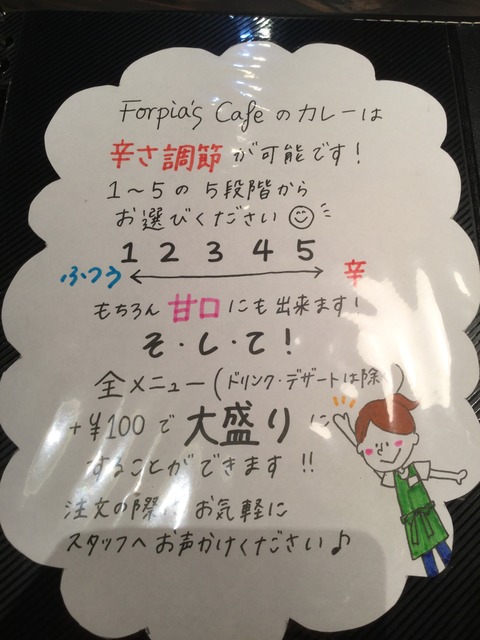 Forpia's Cafe のカレーは
辛さ調節が可能です！
1〜5の5段階から
お選びください
1 2 3 4 5
ふつう 辛
もちろん甘口にも出来ます！
そ・し・て！
全メニュー(ドリンク・デザートは除く)
+¥100で大盛りに
することができます!!
注文の際に お気軽に
スタッフへお声かけください♪